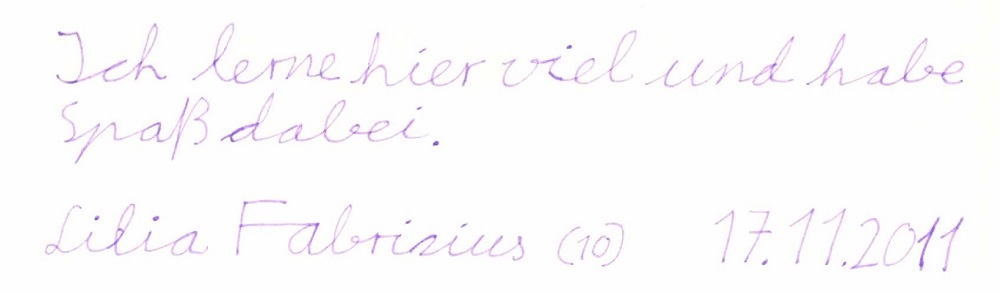 Ich lerne hier viel und habe
Spaß dabei.
Lilia Fabrizius (10) 17.11.2011